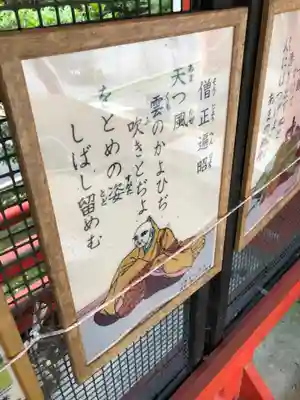 僧正遍昭
天つ風
雲のかよひぢ
吹きとぢよ
をとめの姿
しばし留めむ